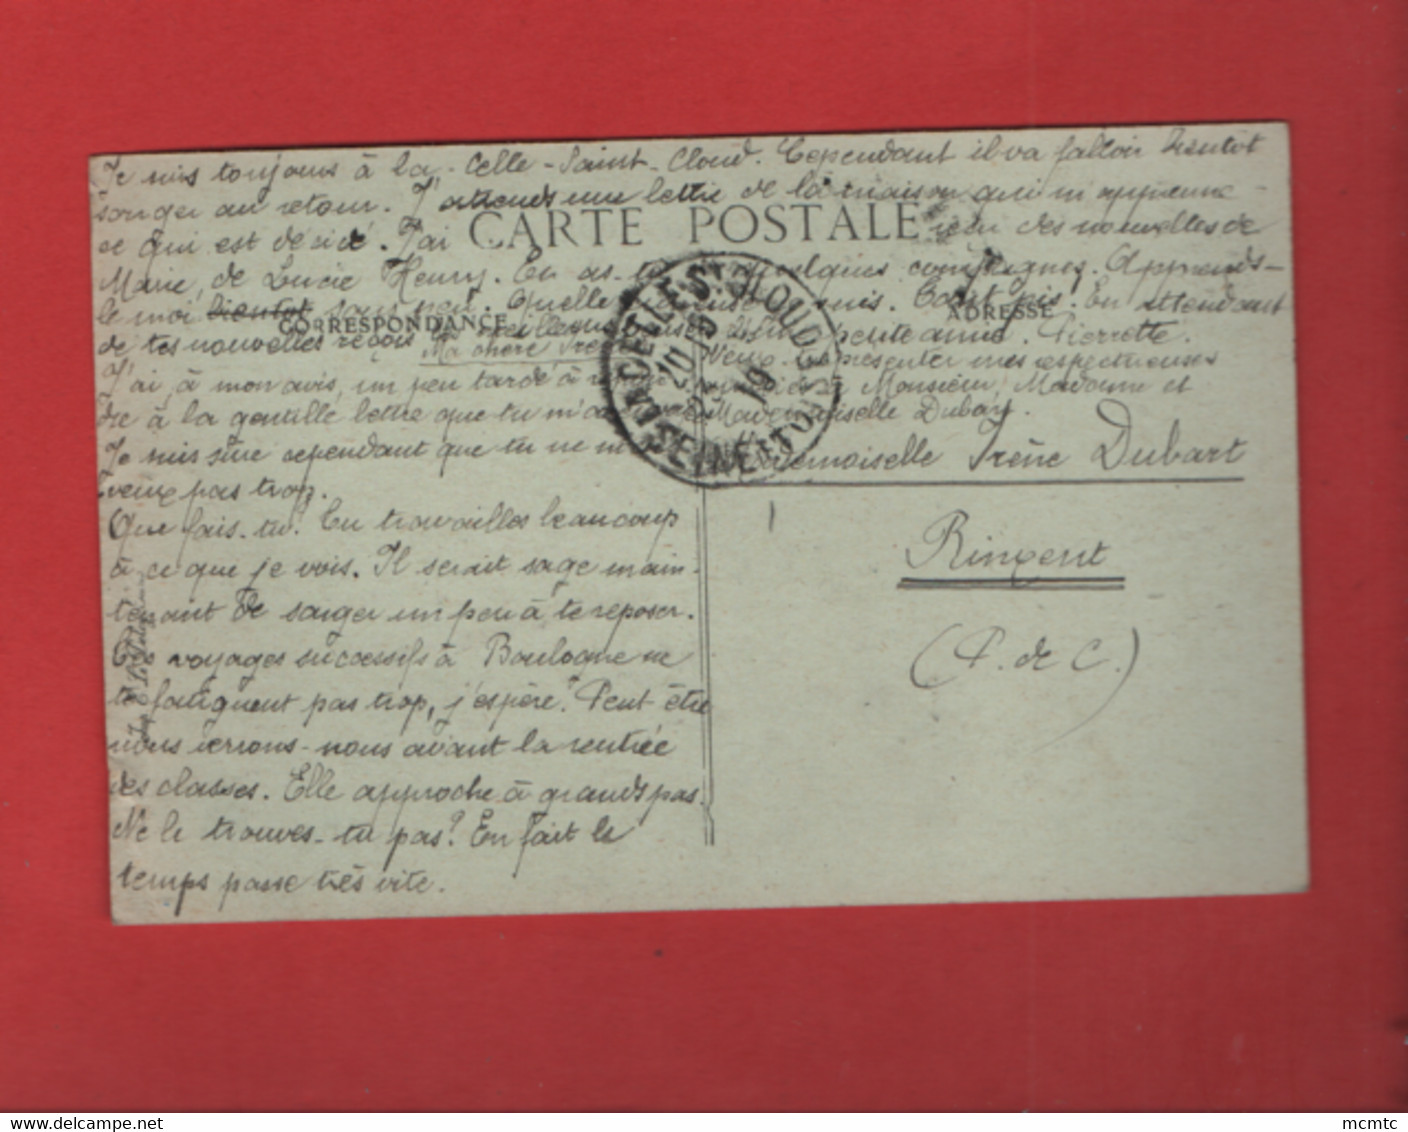 Je suis toujours à la Celle-Saint-Cloud. Cependant il va falloir bientôt
songer au retour. J'attends une lettre de la maison qui m'apprenne
ce qui est décidé. J'ai reçu des nouvelles de
CARTE POSTALE
Marie, de Lucie Henry. En as-tu quelques compagnes. Apprends-
le moi bientôt sans peu. Quelle suis. Tant pis. En attendant
CORRESPONDANCE
ADRESSE
de tes nouvelles reçois les petite amie. Pierrette.
Ma chère Irène
Veux représenter mes respectueuses
J'ai, à mon avis, un peu tardé à répon
à Monsieur, Madame et
dre à la gentille lettre que tu m'as
Mademoiselle Dubart.
Je suis sûre cependant que tu ne m'en
veux pas trop.
Mademoiselle Irène Dubart
Rinxent
(P. de C.)
Que fais-tu? Tu travailles beaucoup
à ce que je vois. Il serait sage main-
tenant de songer un peu à te reposer.
Ces voyages successifs à Boulogne ne
te fatiguent pas trop, j'espère? Peut être
nous verrons-nous avant la rentrée
des classes. Elle approche à grands pas.
Ne le trouves-tu pas? En fait le
temps passe très vite.
LA CELLE ST CLOUD
SEINE-ET-OISE
19
mcmtc